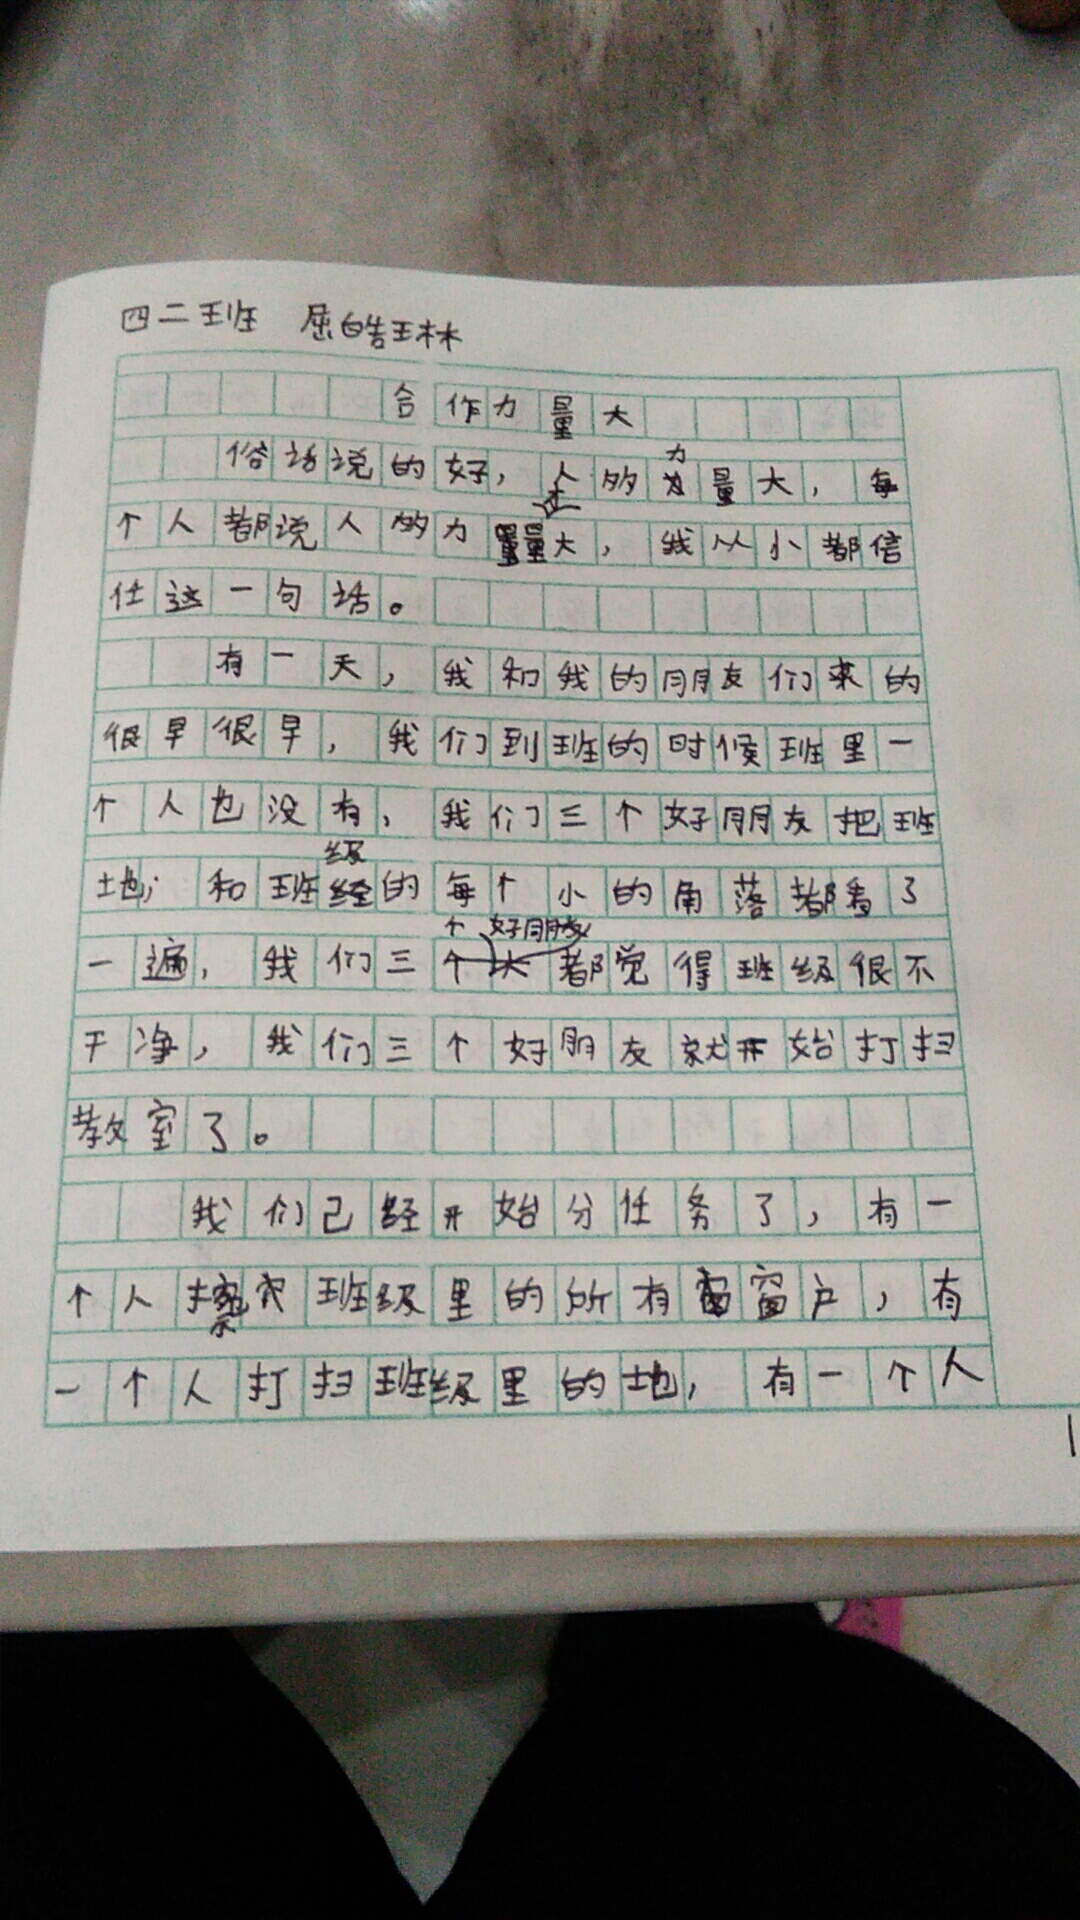 四二班 屈皓琳
合作力量大
俗话说的好，人多力量大，每
个人都说人多力量大，我从小都信
任这一句话。
有一天，我和我的朋友们来的
很早很早，我们到班的时候班里一
个人也没有，我们三个好朋友把班
地，和班级的每个小的角落都看了
一遍，我们三个好朋友都觉得班级很不
干净，我们三个好朋友就开始打扫
教室了。
我们已经开始分任务了，有一
个人擦班级里的所有窗户，有
一个人打扫班级里的地，有一个人
1